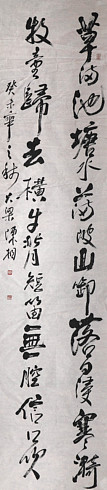 草满池塘水满陂山衔落日浸寒漪
牧童歸去横牛背短笛無腔信口吹
癸未寒之錄大梁陳桐